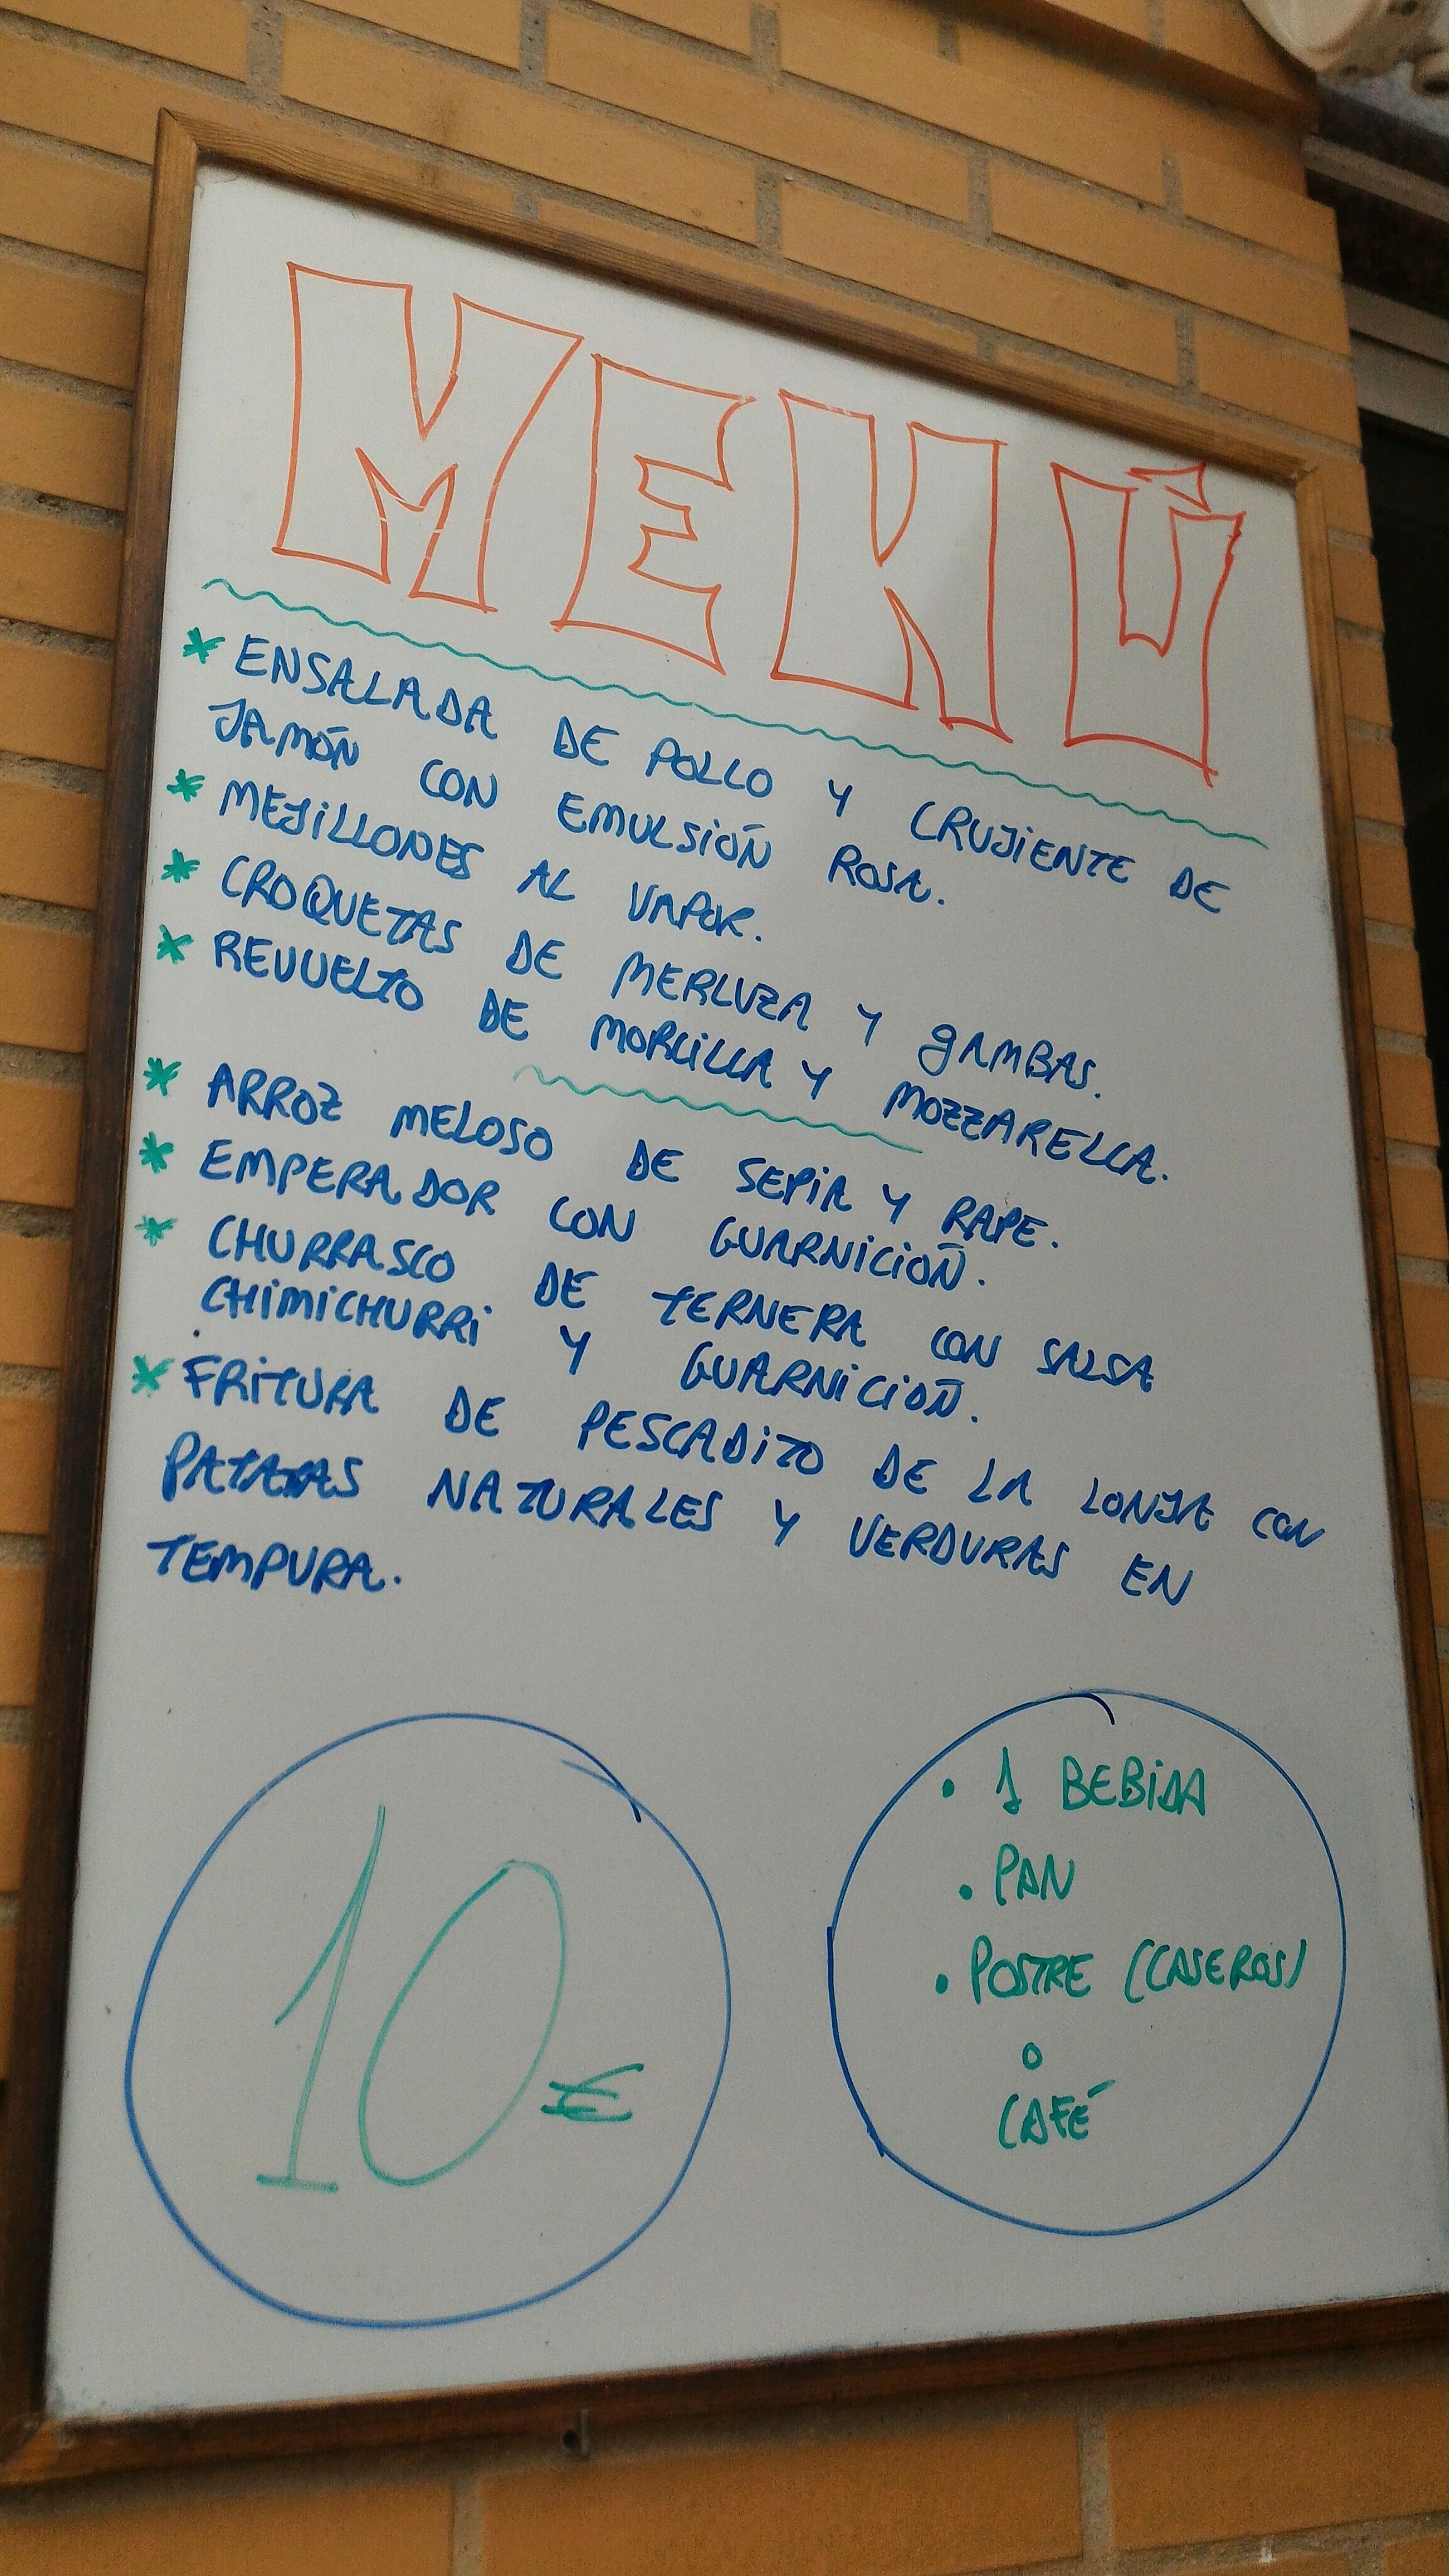 MENÚ
* ENSALADA DE POLLO Y CRUJIENTE DE
JAMÓN CON EMULSIÓN ROSA.
* MEJILLONES AL VAPOR.
* CROQUETAS DE MERLUZA Y GAMBAS.
* REVUELTO DE MORCILLA Y MOZZARELLA.
* ARROZ MELOSO DE SEPIA Y RAPE.
* EMPERADOR CON GUARNICIÓN.
* CHURRASCO DE TERNERA CON SALSA
CHIMICHURRI Y GUARNICIÓN.
* FRITURA DE PESCADITO DE LA LONJA CON
PATATAS NATURALES Y VERDURAS EN
TEMPURA.
10€
• 1 BEBIDA
• PAN
• POSTRE (CASEROS)
o
CAFÉ